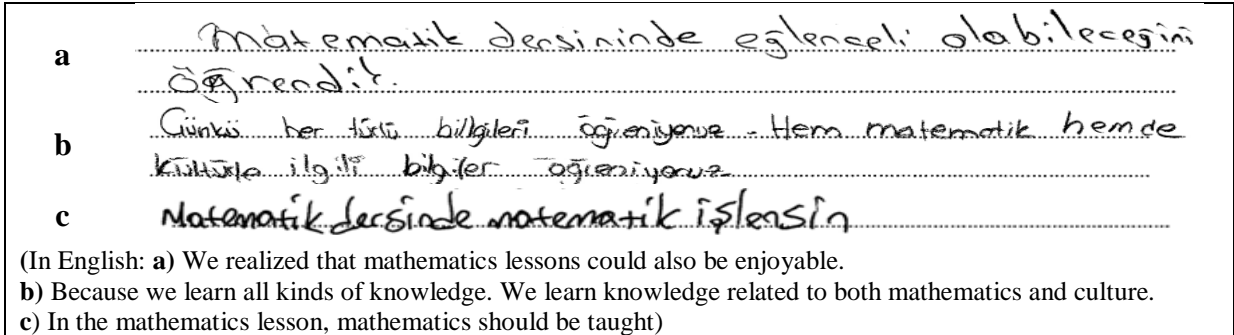 a Matematik dersininde eğlenceli olabileceğini
öğrendik.
b Günkü her türlü bilgileri öğreniyoruz. Hem matematik hemde
kültürle ilgili bilgiler öğreniyoruz
c Matematik dersinde matematik işlensin
(In English: a) We realized that mathematics lessons could also be enjoyable.
b) Because we learn all kinds of knowledge. We learn knowledge related to both mathematics and culture.
c) In the mathematics lesson, mathematics should be taught)